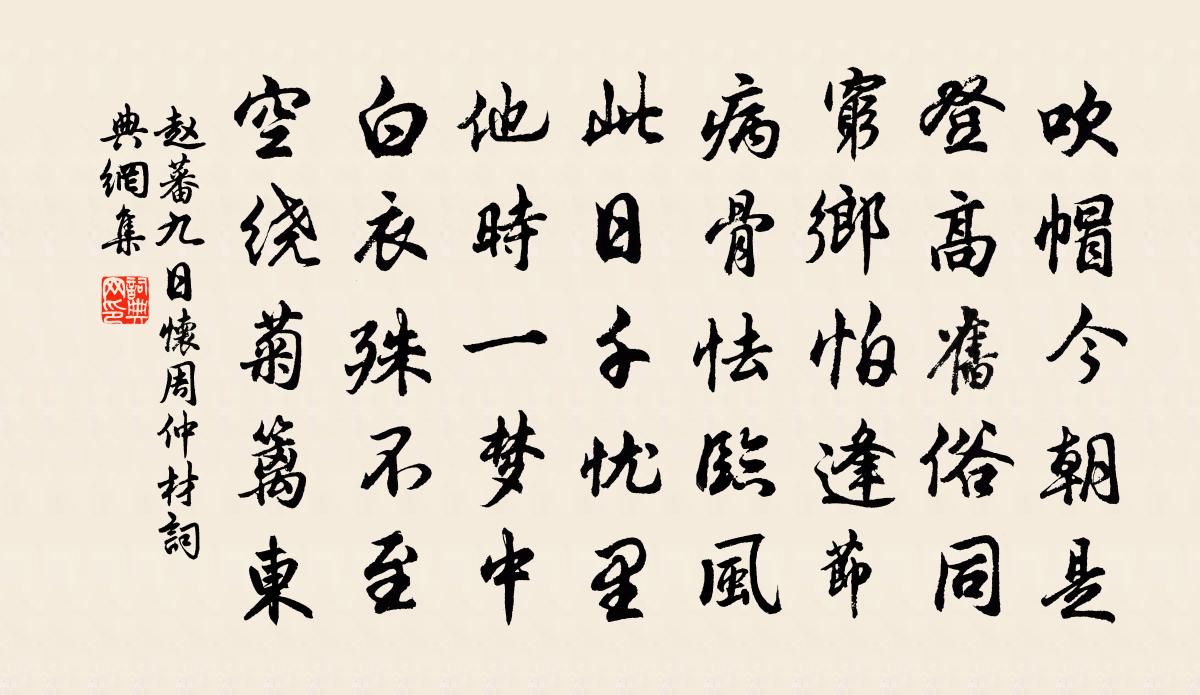 吹帽今朝是
登高舊俗同
窮鄉怕逢節
病骨怯臨風
此日千忧里
他時一梦中
白衣殊不至
空绕菊篱東
赵蕃九日懷周仲材詞
典網集
詞典网印